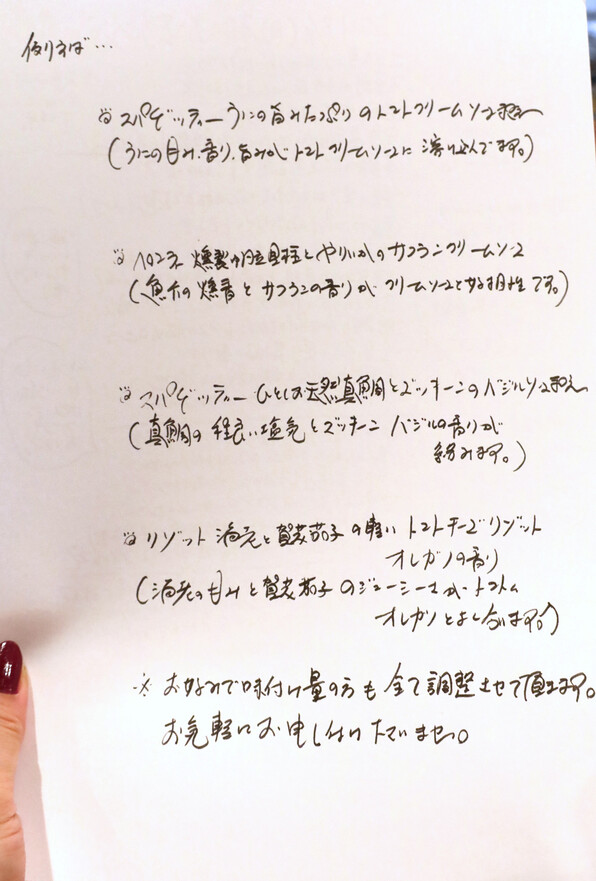 例えば…
スパゲッティー うにの旨みたっぷりのトマトクリームソース和え
(うにの甘み、香り、旨みがトマトクリームソースに溶け込んでます。)
ペンネ 燻製 帆立貝柱とやりいかのサフランクリームソース
(魚介の燻香とサフランの香りがクリームソースと好相性です。)
スパゲッティー ひとしお天然真鯛とズッキーニのバジルソース和え
(真鯛の程良い塩気とズッキーニ バジルの香りが
絡みます。)
リゾット 海老と賀茂茄子の軽いトマトチーズリゾット
オレガノの香り
(海老の甘みと賀茂茄子のジューシーさがトマト
オレガノとよく合います。)
※ お好みで味付け量の方も全て調整させて頂きます。
お気軽にお申し付け下さいませ。